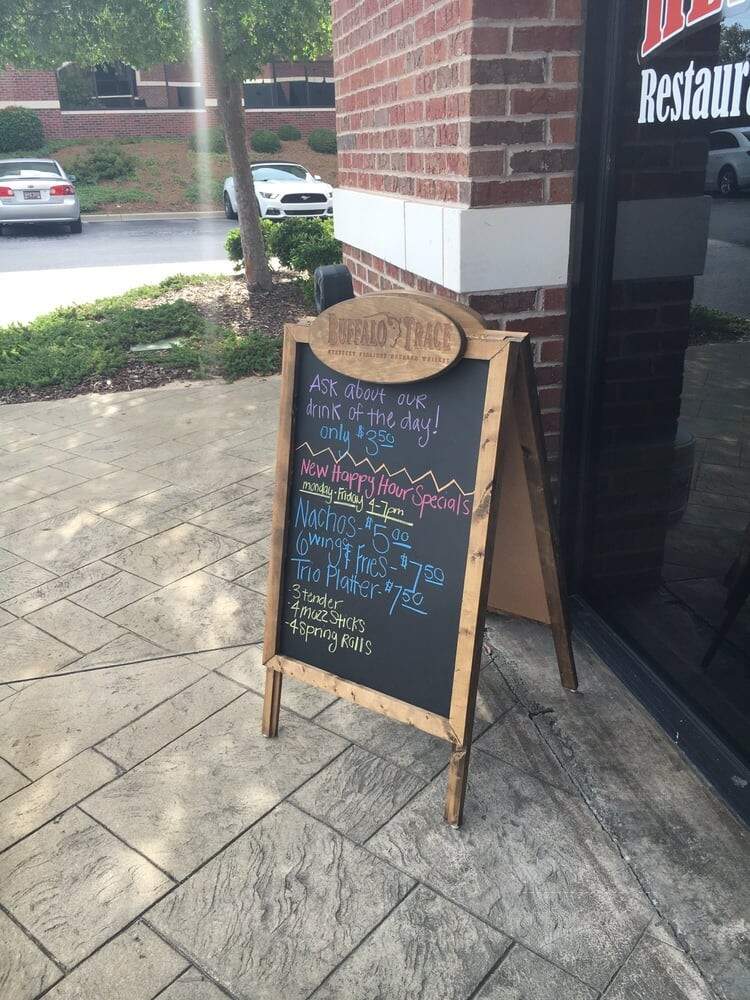 Restaur
BUFFALO TRACE
KENTUCKY STRAIGHT BOURBON WHISKEY
Ask about our
drink of the day!
only $3.50
New Happy Hour Specials
monday-Friday 4-7pm
Nachos-$5.00
6 wings & Fries-$7.50
Trio Platter-$7.50
-3 tender
-4 mozz Sticks
-4 Spring Rolls